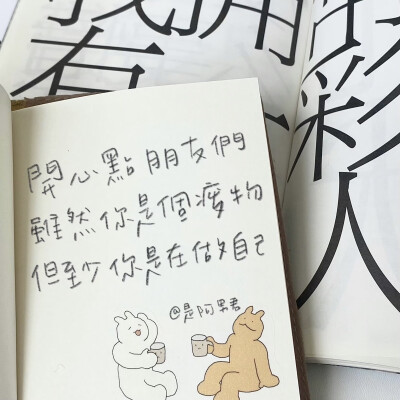 擁
有
彩
人
開心點朋友們
雖然你是個廢物
但至少你是在做自己